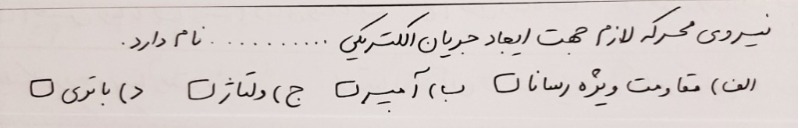 نیروی محرکه لازم جهت ایجاد جریان الکتریکی ........... نام دارد.
الف) مقاومت ویژه رسانا □ ب) آمپر □ ج) ولتاژ □ د) باتری □